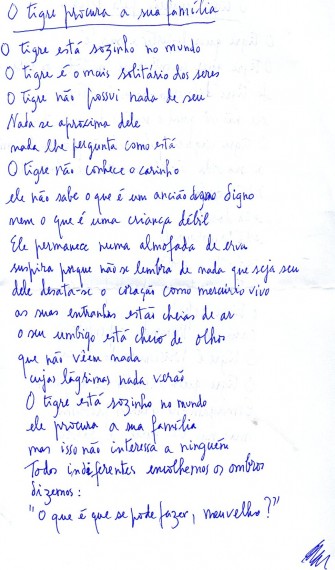 O tigre procura a sua família
O tigre está sozinho no mundo
O tigre é o mais solitário dos seres
O tigre não possui nada de seu
Nada se aproxima dele
nada lhe pergunta como está
O tigre não conhece o carinho
ele não sabe o que é um ancião digno
nem o que é uma criança débil
Ele permanece numa almofada de erva
suspira porque não se lembra de nada que seja seu
dele desata-se o coração como mercúrio vivo
as suas entranhas estão cheias de ar
o seu umbigo está cheio de olhos
que não vêem nada
cujas lágrimas nada verão
O tigre está sozinho no mundo
ele procura a sua família
mas isso não interessa a ninguém
Todos indiferentes encolhemos os ombros
dizemos:
"O que é que se pode fazer, meu velho?"